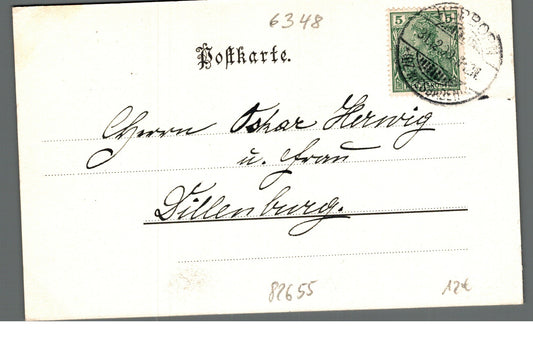 6348
5
Postkarte.
Herrn Oskar Herwig
u. Frau
Dillenburg.
82655
12€